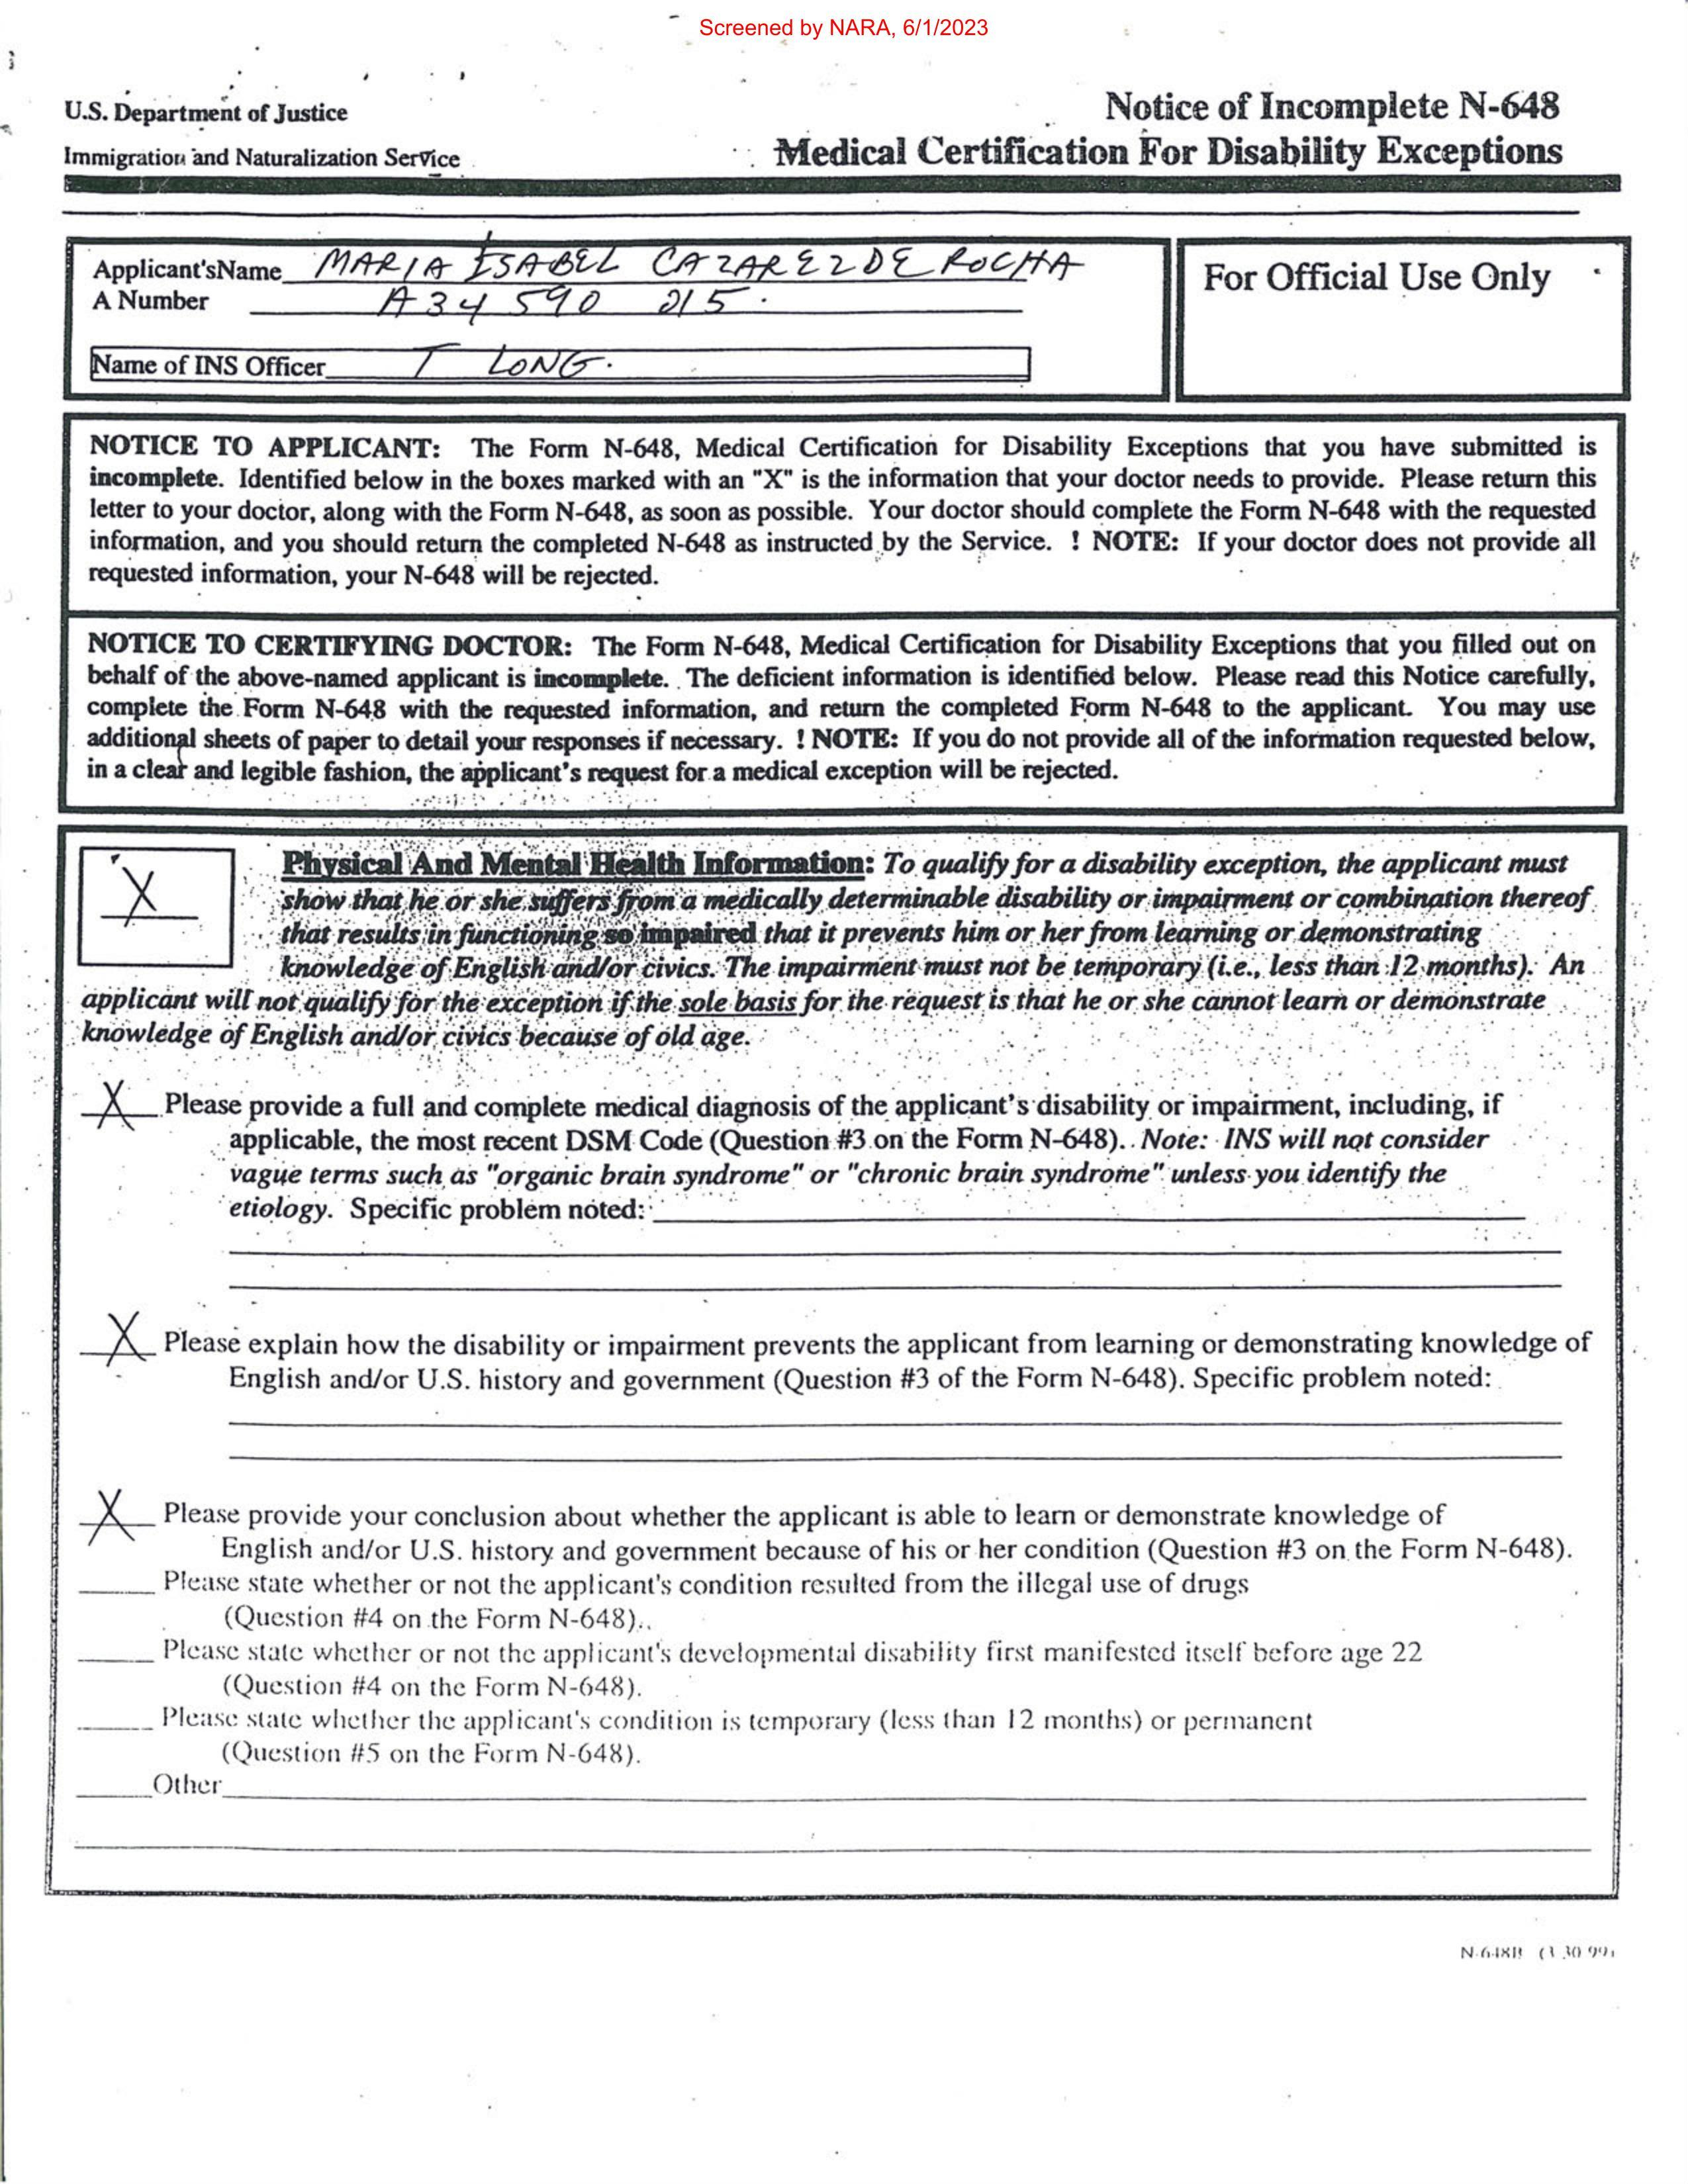 Screened by NARA, 6/1/2023
U.S. Department of Justice
Immigration and Naturalization Service
Notice of Incomplete N-648
Medical Certification For Disability Exceptions
Applicant'sName MARIA ISABEL CAZAREZ DE ROCHA
A Number A34 590 215.
Name of INS Officer T LONG.
For Official Use Only
NOTICE TO APPLICANT: The Form N-648, Medical Certification for Disability Exceptions that you have submitted is
incomplete. Identified below in the boxes marked with an "X" is the information that your doctor needs to provide. Please return this
letter to your doctor, along with the Form N-648, as soon as possible. Your doctor should complete the Form N-648 with the requested
information, and you should return the completed N-648 as instructed by the Service. ! NOTE: If your doctor does not provide all
requested information, your N-648 will be rejected.
NOTICE TO CERTIFYING DOCTOR: The Form N-648, Medical Certification for Disability Exceptions that you filled out on
behalf of the above-named applicant is incomplete. The deficient information is identified below. Please read this Notice carefully,
complete the Form N-648 with the requested information, and return the completed Form N-648 to the applicant. You may use
additional sheets of paper to detail your responses if necessary. ! NOTE: If you do not provide all of the information requested below,
in a clear and legible fashion, the applicant's request for a medical exception will be rejected.
X Physical And Mental Health Information: To qualify for a disability exception, the applicant must
show that he or she suffers from a medically determinable disability or impairment or combination thereof
that results in functioning so impaired that it prevents him or her from learning or demonstrating
knowledge of English and/or civics. The impairment must not be temporary (i.e., less than 12 months). An
applicant will not qualify for the exception if the sole basis for the request is that he or she cannot learn or demonstrate
knowledge of English and/or civics because of old age.
X Please provide a full and complete medical diagnosis of the applicant's disability or impairment, including, if
applicable, the most recent DSM Code (Question #3 on the Form N-648). Note: INS will not consider
vague terms such as "organic brain syndrome" or "chronic brain syndrome" unless you identify the
etiology. Specific problem noted:
X Please explain how the disability or impairment prevents the applicant from learning or demonstrating knowledge of
English and/or U.S. history and government (Question #3 of the Form N-648). Specific problem noted:
X Please provide your conclusion about whether the applicant is able to learn or demonstrate knowledge of
English and/or U.S. history and government because of his or her condition (Question #3 on the Form N-648).
Please state whether or not the applicant's condition resulted from the illegal use of drugs
(Question #4 on the Form N-648)..
Please state whether or not the applicant's developmental disability first manifested itself before age 22
(Question #4 on the Form N-648).
Please state whether the applicant's condition is temporary (less than 12 months) or permanent
(Question #5 on the Form N-648).
Other
N-648B (3.30.99)